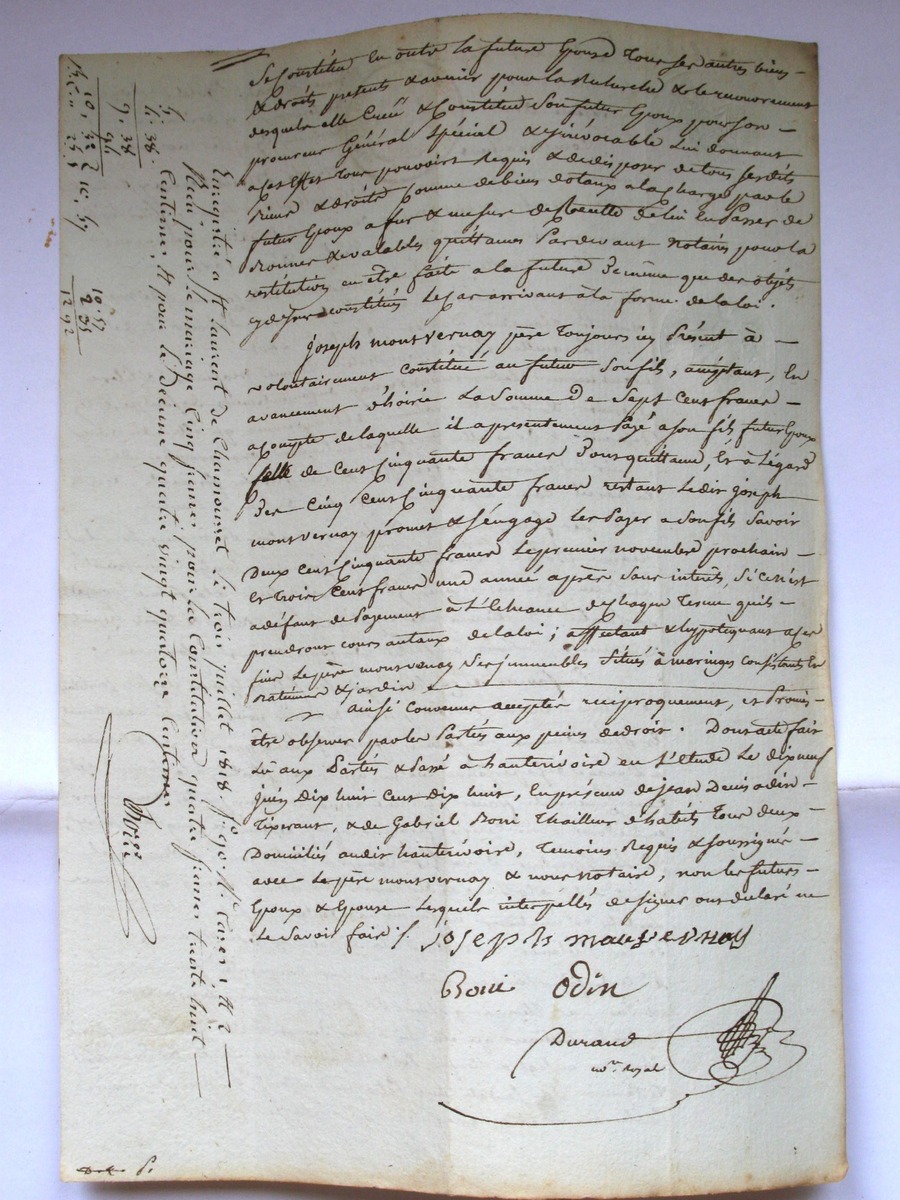 Se Constitue En outre la future Epouse Tous ses autres biens -
& droits présents & avenir pour la Recherche & le recouvrement
desquels elle Créé & Constitue Son futur Epoux pour son -
procureur Général Spécial & irrévocable Lui donnant
a cet Effet Tous pouvoirs Requis & de disposer de tous ses dits
biens & droits Comme de biens dotaux a la Charge par le
futur Epoux a fur & mesure de Recette de lui En Passer de
Bonnes & valables quittances Pardevant notaire pour la
restitution en être faite a la future de même que des objets
cy dessus constitués le Cas arrivant à la forme de la loi.
Joseph montvernay père Toujours icy Présent à -
volontairement constitué au futur Son fils, acceptant, En
avancement d'hoirie La Somme De Sept Cent francs -
a Compte de laquelle il a présentement Payé a son fils futur Epoux
Celle de Cent Cinquante francs Dont quittance, Et à L'égard
Des Cinq Cent Cinquante francs restant Ledit Joseph
montvernay promet & s'engage les Payer a Son fils Savoir
Deux cent Cinquante francs Le premier novembre prochain -
Et trois Cent francs une année après Sans interêts, Si Ce n'est
a défaut de Payement à L'Echéance de Chaque Terme qu'ils -
prendront cours au taux de la loi; affectant & hypotéquant a ces
fins Le père montvernay Ses immeubles Situés à maringes Consistants En
batiments & jardin
ainsi Convenu accepté réciproquement, et Promis
être observé par les Parties aux peines de droit. Dont acte fait
Lû aux Parties & Passé à hauterivoire en L'étude Le dix neuf
juin Dix huit Cent Dix huit, En présence de jean Denis odin
Tixerant, & de Gabriel Boni Thailleur d'habits Tous deux -
Domiciliés audit hauterivoire, Temoins Requis & Soussignés -
avec Le père montvernay & nous notaire, non les futurs -
Epoux & Epouse Lesquels interpellés de signer ont déclaré ne
Le Savoir faire /.
joseph
Boni Odin
Durand
no.re royal
Enregistré à St Laurent de Chamousset le trois juillet 1818 fo 90
Reçu pour le mariage Cinq francs pour la Constitution quatre francs trente huit
Centimes & pour le Décime quatre vingt quatorze Centimes
5.
4. 38.
9. 38
94
10. 32
10. 57
2 35
12 92